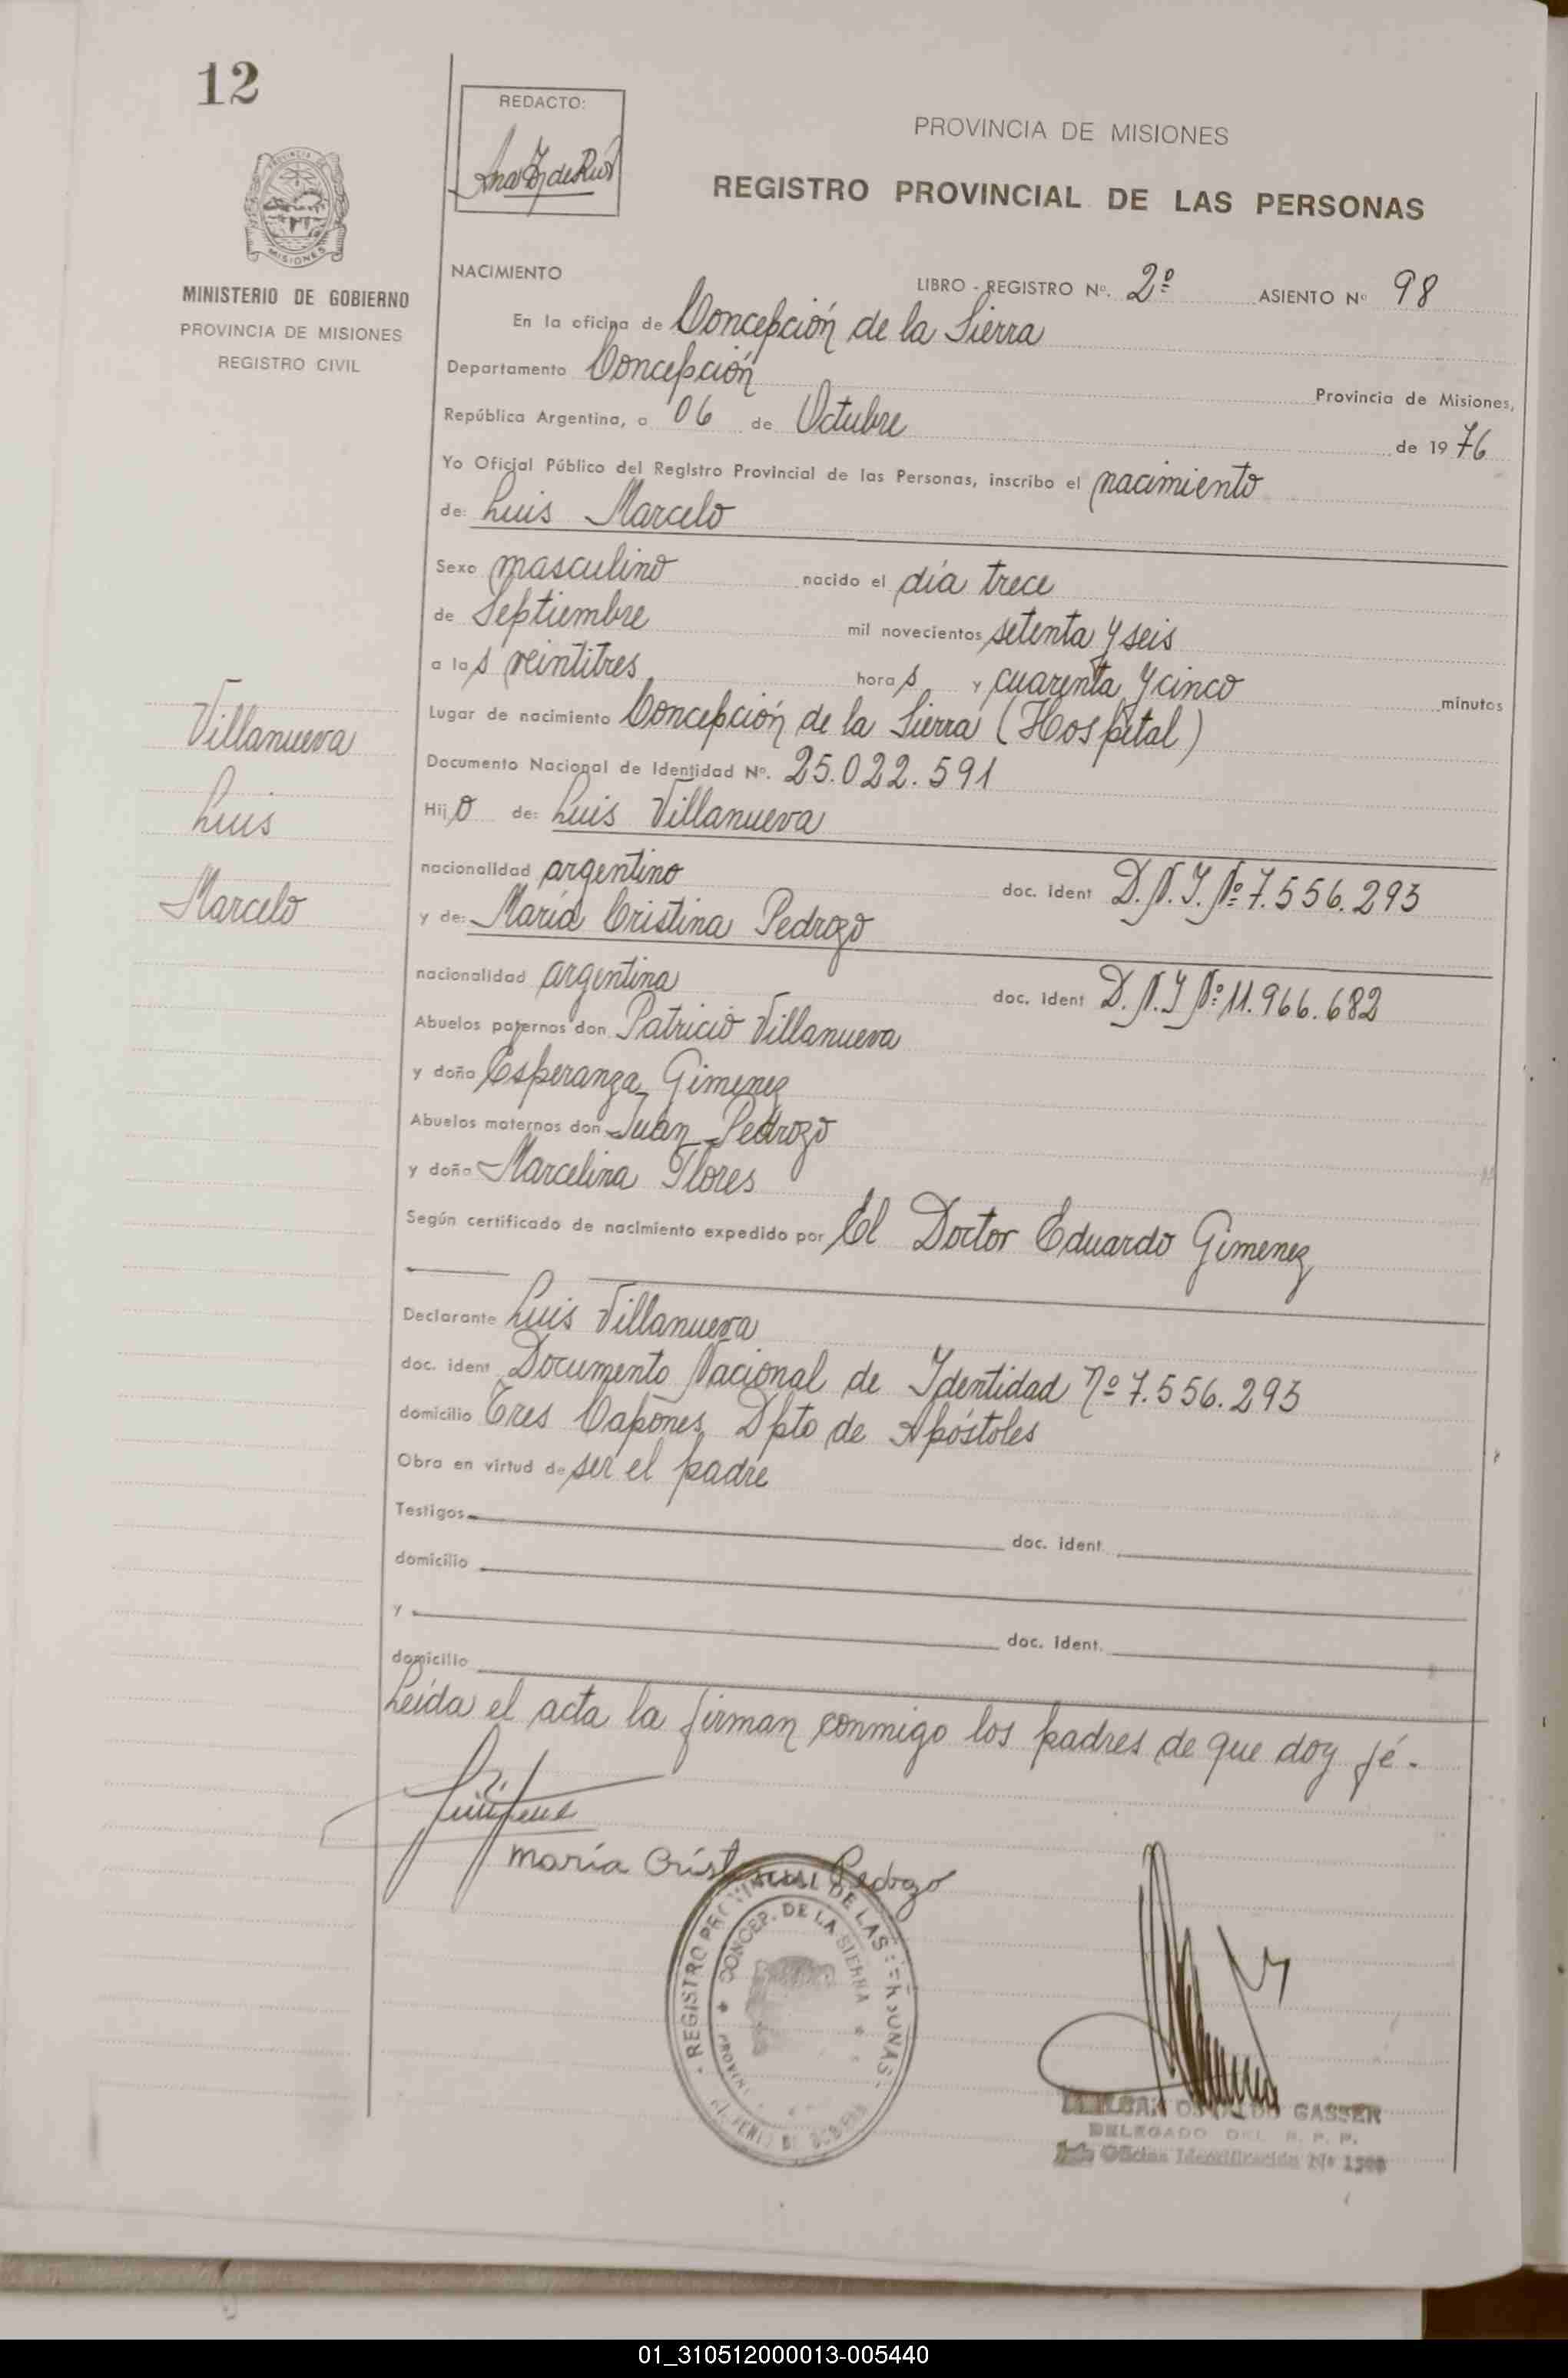 12
REDACTO:
PROVINCIA DE MISIONES
REGISTRO PROVINCIAL DE LAS PERSONAS
MISIONES
MINISTERIO DE GOBIERNO
PROVINCIA DE MISIONES
REGISTRO CIVIL
NACIMIENTO LIBRO - REGISTRO Nº. 2º ASIENTO Nº 98
En la oficina de Concepción de la Sierra
Departamento Concepción Provincia de Misiones,
República Argentina, a 06 de Octubre de 1976
Yo Oficial Público del Registro Provincial de las Personas, inscribo el nacimiento
de: Luis Marcelo
Sexo masculino nacido el día trece
de Septiembre mil novecientos setenta y seis
a las veintitres horas y cuarenta y cinco minutos
Lugar de nacimiento Concepción de la Sierra (Hospital)
Documento Nacional de Identidad Nº. 25.022.591
Hijo de: Luis Villanueva
nacionalidad argentino doc. ident D.N.I. Nº 7.556.293
y de: María Cristina Pedrozo
nacionalidad argentina doc. ident D.N.I Nº 11.966.682
Abuelos paternos don Patricio Villanueva
y doña Esperanza Gimenez
Abuelos maternos don Juan Pedrozo
y doña Marcelina Flores
Según certificado de nacimiento expedido por El Doctor Eduardo Gimenez
Declarante Luis Villanueva
doc. ident Documento Nacional de Identidad Nº 7.556.293
domicilio Tres Capones, Dpto de Apóstoles
Obra en virtud de ser el padre
Testigos doc. ident.
domicilio
y doc. ident.
domicilio
Leída el acta la firman conmigo los padres de que doy fé.
Villanueva
Luis
Marcelo
María Crist Pedrozo
REGISTRO PROVINCIAL DE LAS PERSONAS
CONCEP. DE LA SIERRA
GASSER
DELEGADO DEL R. P. P.
Oficina Identificación Nº
01_310512000013-005440